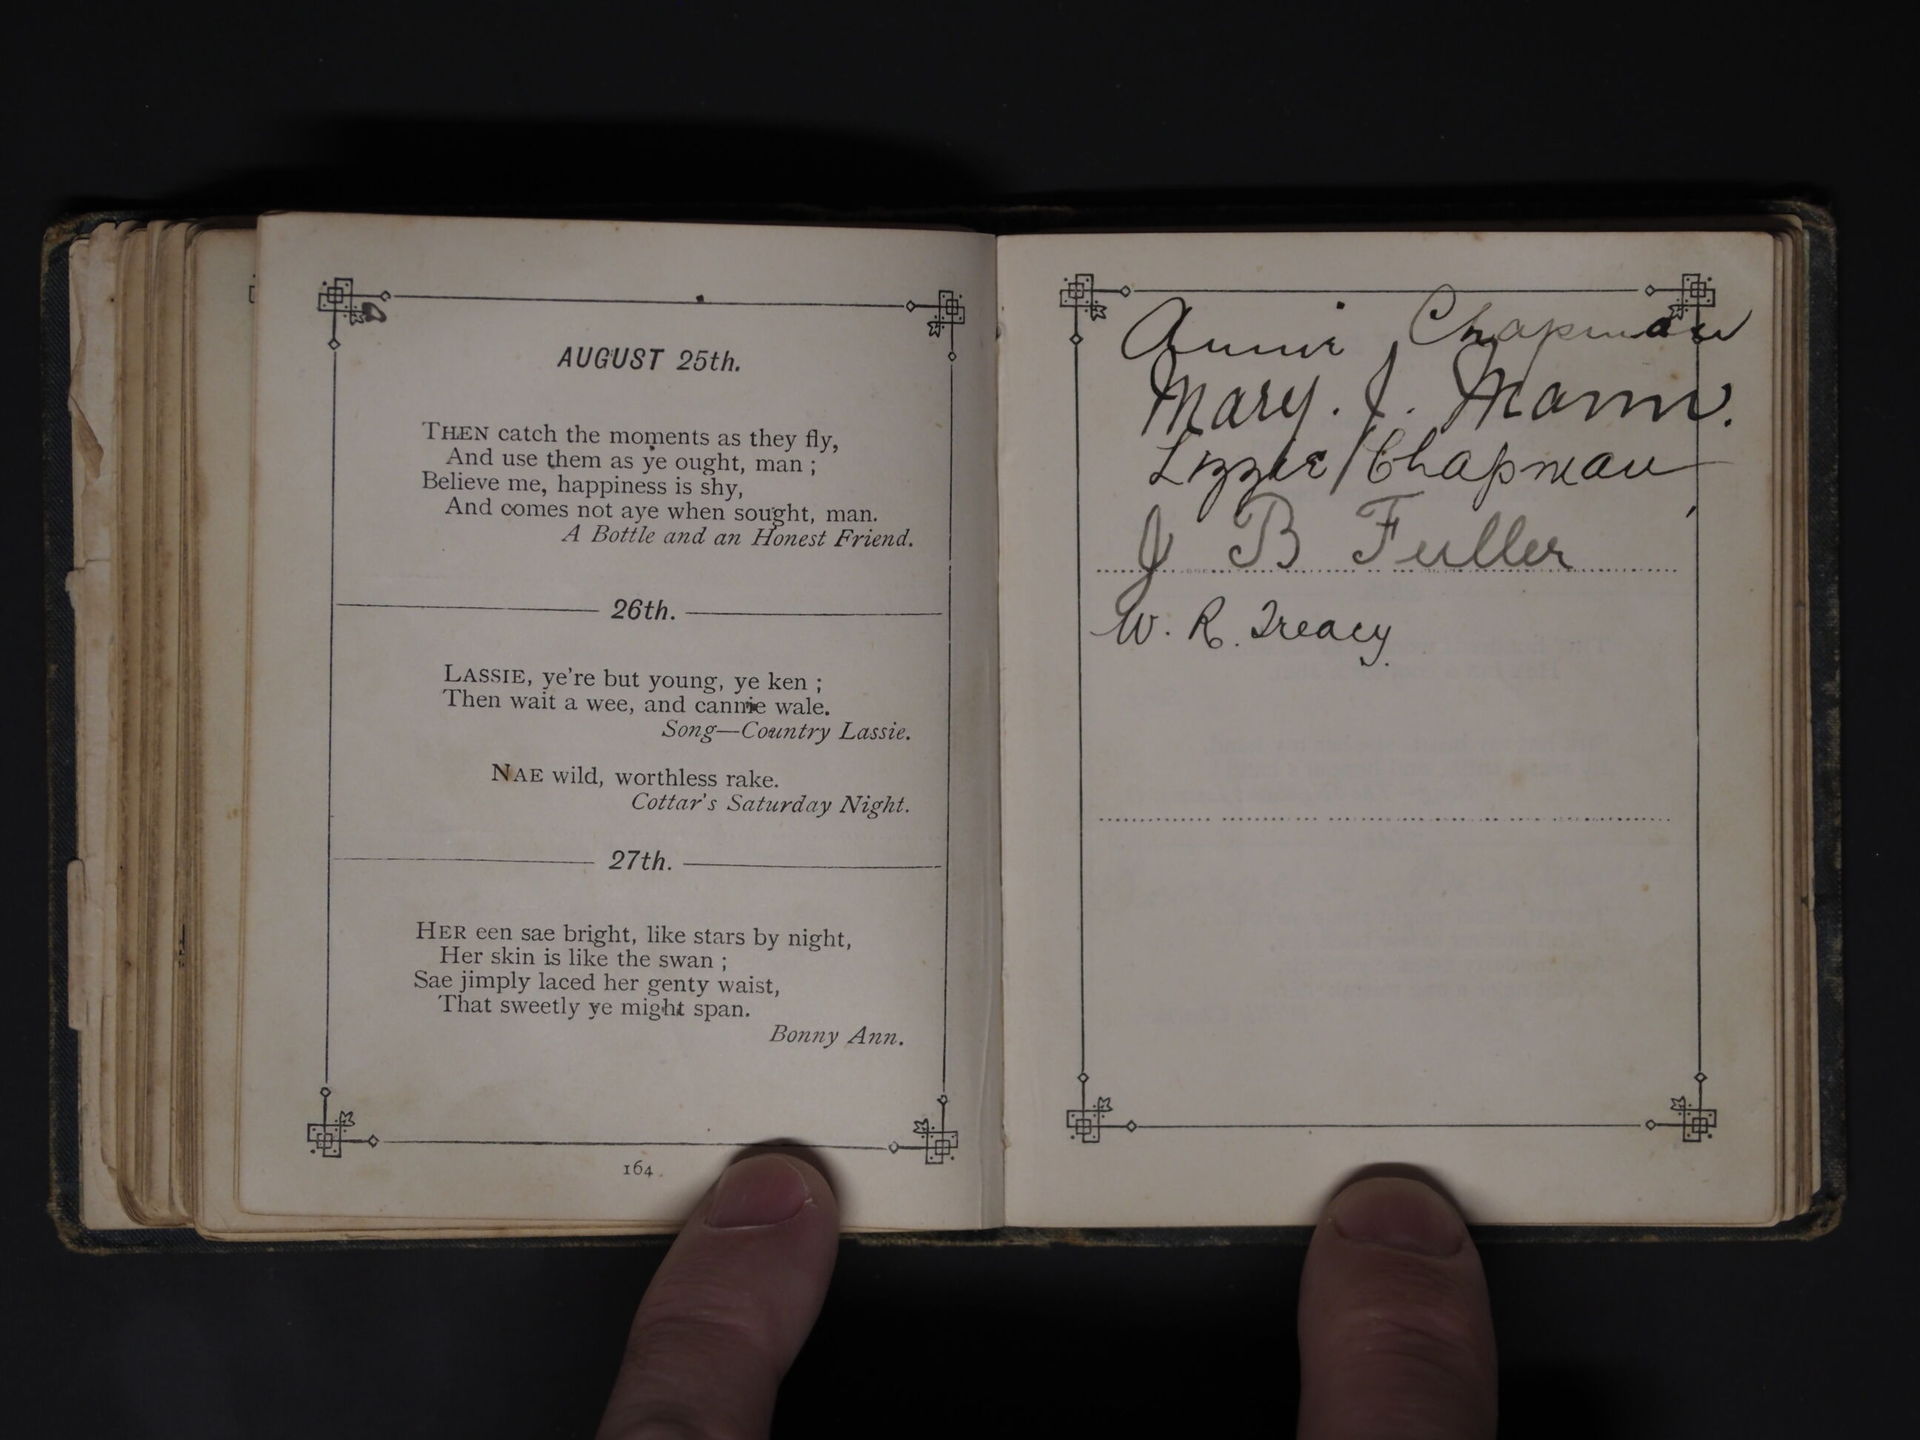 AUGUST 25th.
THEN catch the moments as they fly,
And use them as ye ought, man ;
Believe me, happiness is shy,
And comes not aye when sought, man.
A Bottle and an Honest Friend.
26th.
LASSIE, ye're but young, ye ken ;
Then wait a wee, and cannie wale.
Song—Country Lassie.
NAE wild, worthless rake.
Cottar's Saturday Night.
27th.
HER een sae bright, like stars by night,
Her skin is like the swan ;
Sae jimply laced her genty waist,
That sweetly ye might span.
Bonny Ann.
164
Annie Chapman
Mary. J. Mann.
Lizzie Chapman
J B Fuller
W. R. Treacy